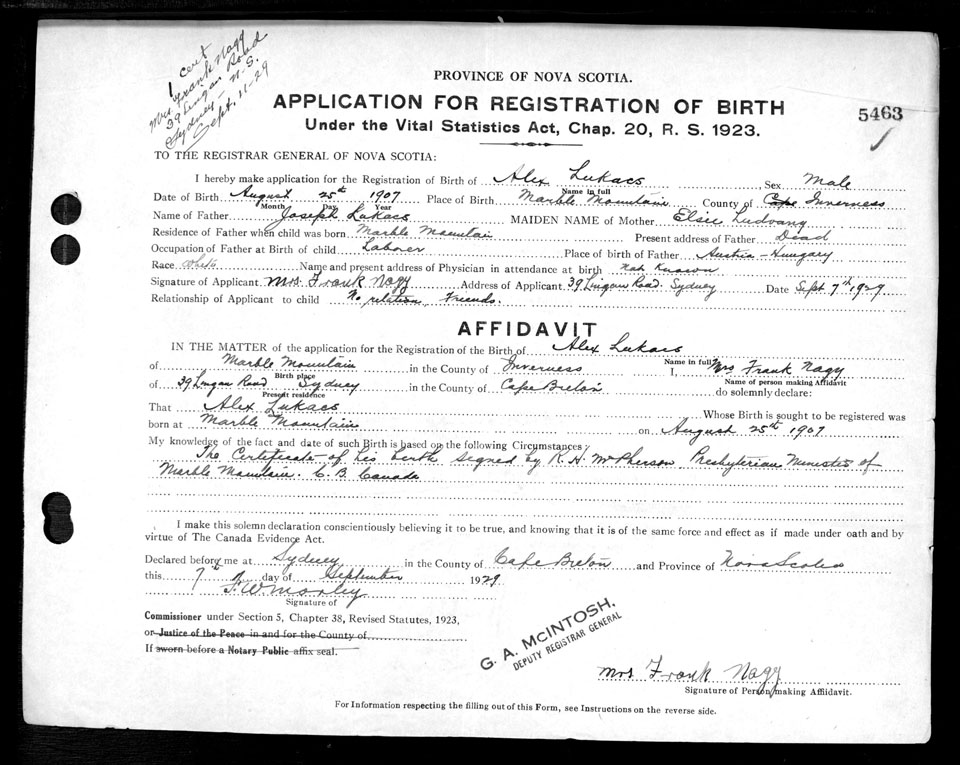 1 cert
Mrs. Frank Nagy
39 Lingan Road
Sydney - N.S.
Sept. 11-29
PROVINCE OF NOVA SCOTIA.
APPLICATION FOR REGISTRATION OF BIRTH
5463
Under the Vital Statistics Act, Chap. 20, R. S. 1923.
TO THE REGISTRAR GENERAL OF NOVA SCOTIA:
I hereby make application for the Registration of Birth of Alex Lukacs Sex Male
Name in full
Date of Birth August 25th 1907 Place of Birth Marble Mountain County of Cape Inverness
Month Day Year
Name of Father Joseph Lukacs MAIDEN NAME of Mother Elsie Ludvany
Residence of Father when child was born Marble Mountain Present address of Father Dead
Occupation of Father at Birth of child Laborer Place of birth of Father Austria-Hungary
Race White Name and present address of Physician in attendance at birth Not Known
Signature of Applicant Mrs. Frank Nagy Address of Applicant 39 Lingan Road. Sydney Date Sept 7th 1929
Relationship of Applicant to child No relation Friends.
AFFIDAVIT
IN THE MATTER of the application for the Registration of the Birth of Alex Lukacs
Name in full
of Marble Mountain in the County of Inverness I, Mrs Frank Nagy
Birth place Name of person making Affidavit
of 39 Lingan Road Sydney in the County of Cape Breton do solemnly declare:
Present residence
That Alex Lukacs Whose Birth is sought to be registered was
born at Marble Mountain on August 25th 1907
My knowledge of the fact and date of such Birth is based on the following Circumstances:
The Certificate of his birth signed by R. H. McPherson Presbyterian Minister of
Marble Mountain. C. B. Canada
I make this solemn declaration conscientiously believing it to be true, and knowing that it is of the same force and effect as if made under oath and by
virtue of The Canada Evidence Act.
Declared before me at Sydney in the County of Cape Breton and Province of Nova Scotia
this 7th day of September 1929
F. W. Morley
Signature of
Commissioner under Section 5, Chapter 38, Revised Statutes, 1923,
or Justice of the Peace in and for the County of
If sworn before a Notary Public affix seal.
G. A. McINTOSH,
DEPUTY REGISTRAR GENERAL
Mrs Frank Nagy
Signature of Person making Affidavit.
For Information respecting the filling out of this Form, see Instructions on the reverse side.